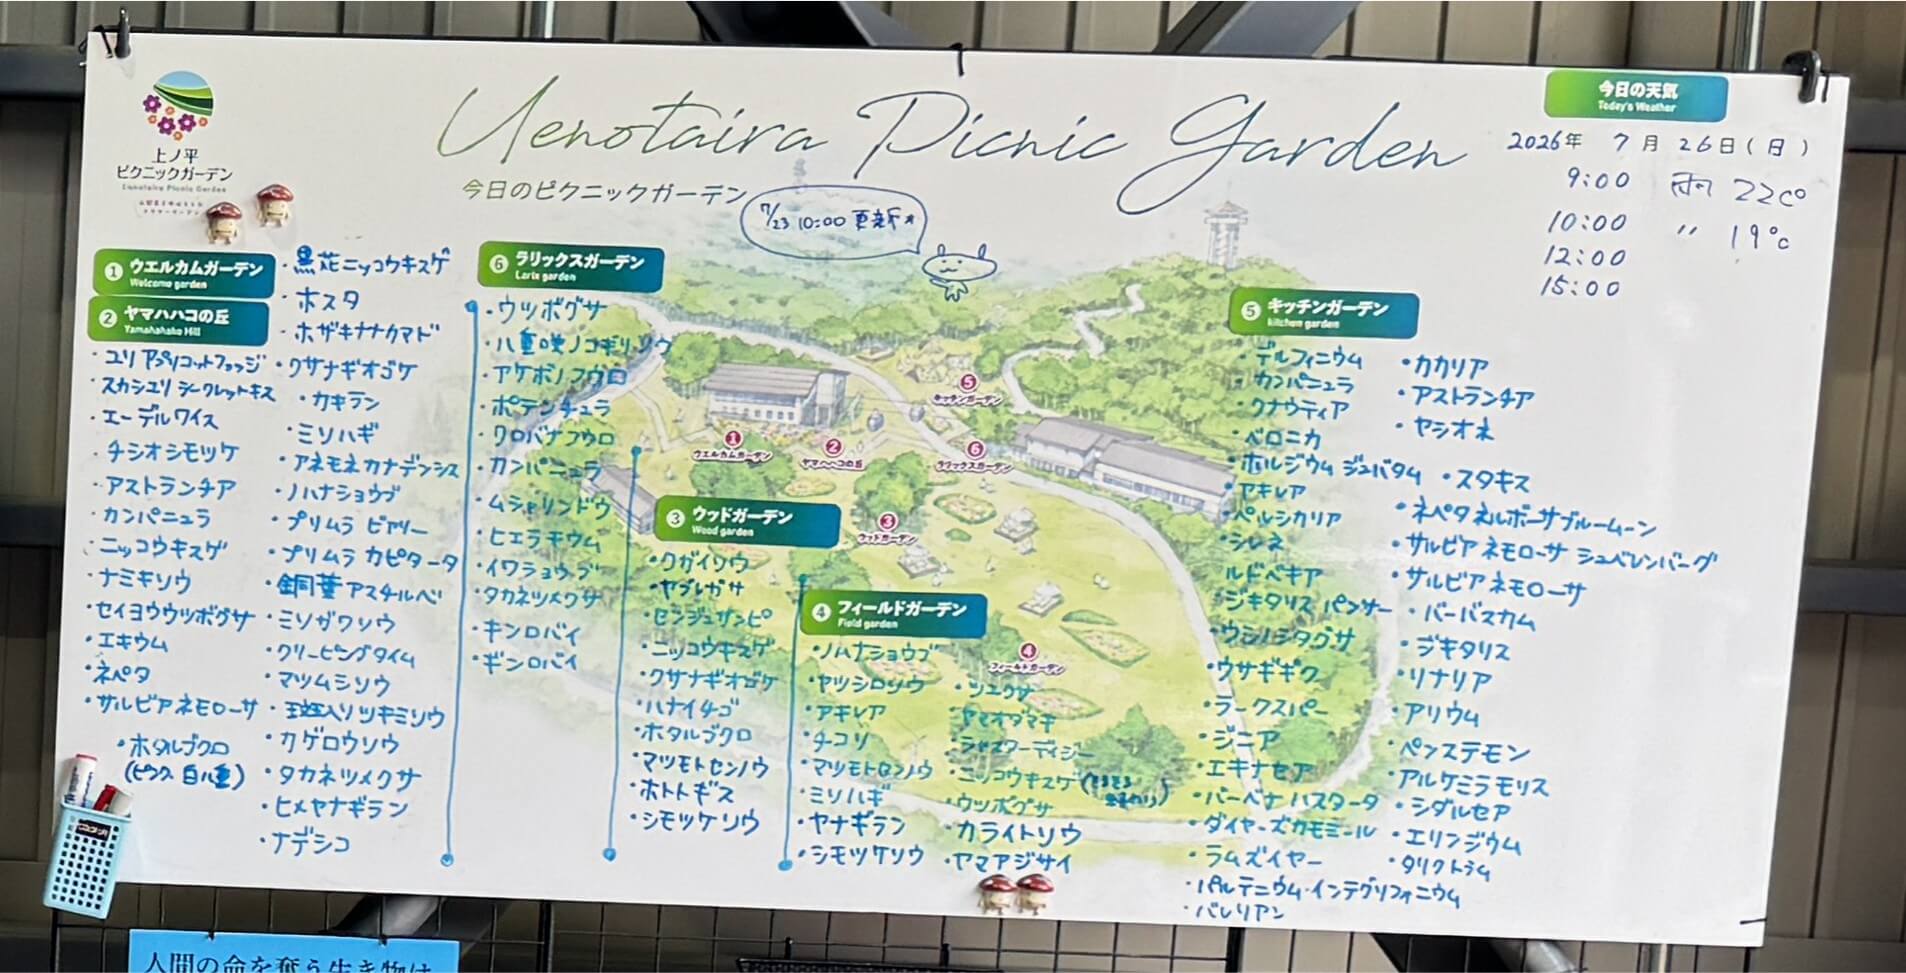 上ノ平
ピクニックガーデン
Uenotaira Picnic Garden
Uenotaira Picnic Garden
今日のピクニックガーデン
7/23 10:00 更新
今日の天気
Today's Weather
2026年 7月 26日(日)
9:00 雨 22c°
10:00 〃 19°c
12:00
15:00
1 ウエルカムガーデン
Welcome garden
2 ヤマハハコの丘
Yamahahako Hill
・ユリ アプリコットファッジ
・スカシユリ シークレットキス
・エーデルワイス
・チシオシモツケ
・アストランチア
・カンパニュラ
・ニッコウキスゲ
・ナミキソウ
・セイヨウウツボグサ
・エキウム
・ネペタ
・サルビアネモローサ
・ホタルブクロ
(ピンク 白八重)
・黒花ニッコウキスゲ
・ホスタ
・ホザキナナカマド
・クサナギオゴケ
・カキラン
・ミソハギ
・アネモネカナデンシス
・ノハナショウブ
・プリムラ ビアリー
・プリムラ カピタータ
・銅葉アスチルベ
・ミソガワソウ
・クリーピングタイム
・マツムシソウ
・斑入りツキミソウ
・カゲロウソウ
・タカネツメクサ
・ヒメヤナギラン
・ナデシコ
6 ラリックスガーデン
Larix garden
・ウツボグサ
・八重咲ノコギリソウ
・アケボノフウロ
・ポテンチュラ
・クロバナフウロ
・カンパニュラ
・ムシャリンドウ
・ヒエラキウム
・イワショウブ
・タカネツメクサ
・キンロバイ
・ギンロバイ
3 ウッドガーデン
Wood garden
・クガイソウ
・ヤブレガサ
・センジュガンピ
・ニッコウキスゲ
・クサナギオゴケ
・ハナイチゴ
・ホタルブクロ
・マツモトセンノウ
・ホトトギス
・シモツケソウ
4 フィールドガーデン
Field garden
・ノハナショウブ
・ヤツシロソウ
・アキレア
・チコリ
・マツモトセンノウ
・ミソハギ
・ヤナギラン
・シモツケソウ
・ツユクサ
・ヤマオダマキ
・シャスターデイジー
・ニッコウキスゲ
・ウツボグサ
・カライトソウ
・ヤマアジサイ
5 キッチンガーデン
kitchen garden
・デルフィニウム
・カンパニュラ
・クナウティア
・ベロニカ
・ホルジウム ジュバタム
・アキレア
・ペルシカリア
・シレネ
・ルドベキア
・ジキタリス パンサー
・ウシノシタグサ
・ウサギギク
・ラークスパー
・ジニア
・エキナセア
・バーベナ ハスタータ
・ダイヤーズカモミール
・ラムズイヤー
・パルテニウム・インテグリフォニウム
・バレリアン
・カカリア
・アストランチア
・ヤシオネ
・スタキス
・ネペタ ネルボーサブルームーン
・サルビア ネモローサ シュベレンバーグ
・サルビア ネモローサ
・バーバスカム
・ジキタリス
・リナリア
・アリウム
・ペンステモン
・アルケミラモリス
・シダルセア
・エリンジウム
・タリクトラム
5
キッチンガーデン
1
ウエルカムガーデン
2
ヤマハハコの丘
6
ラリックスガーデン
3
ウッドガーデン
4
フィールドガーデン
人間の命を奪う生き物は